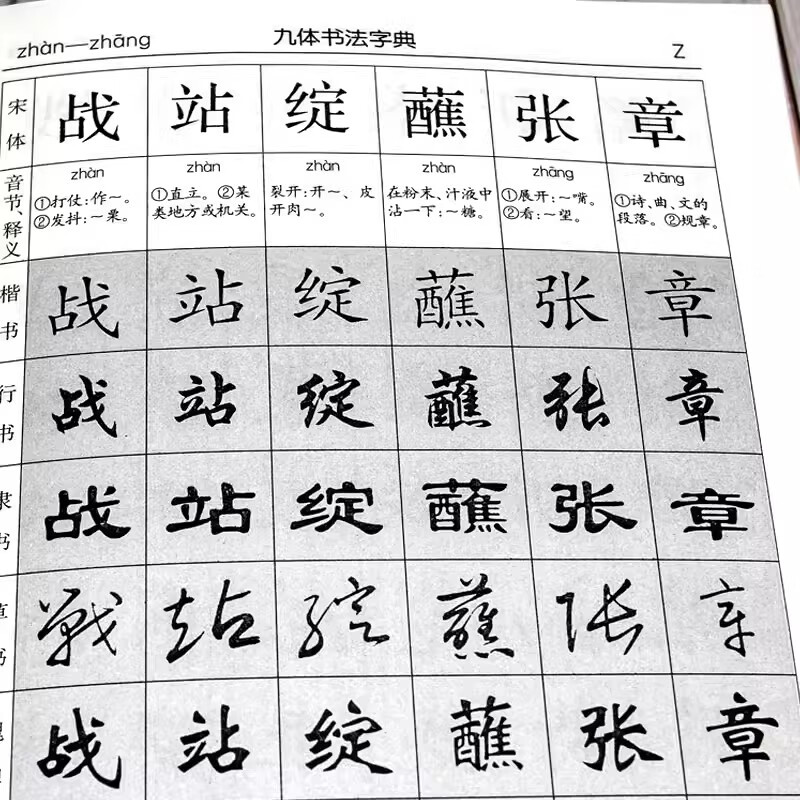 zhàn—zhāng 九体书法字典 Z
宋体 战 站 绽 蘸 张 章
音节、释义 zhàn zhàn zhàn zhàn zhāng zhāng
①打仗:作～。 ①直立。②某 裂开:开～、皮 在粉末、汁液中 ①展开:～嘴。 ①诗、曲、文的
②发抖:～栗。 类地方或机关。 开肉～。 沾一下:～糖。 ②看:～望。 段落。②规章。
楷书 战 站 绽 蘸 张 章
行书 战 站 绽 蘸 张 章
隶书 战 站 绽 蘸 张 章
草书 戰 站 绽 蘸 张 章
魏 战 站 绽 蘸 张 章